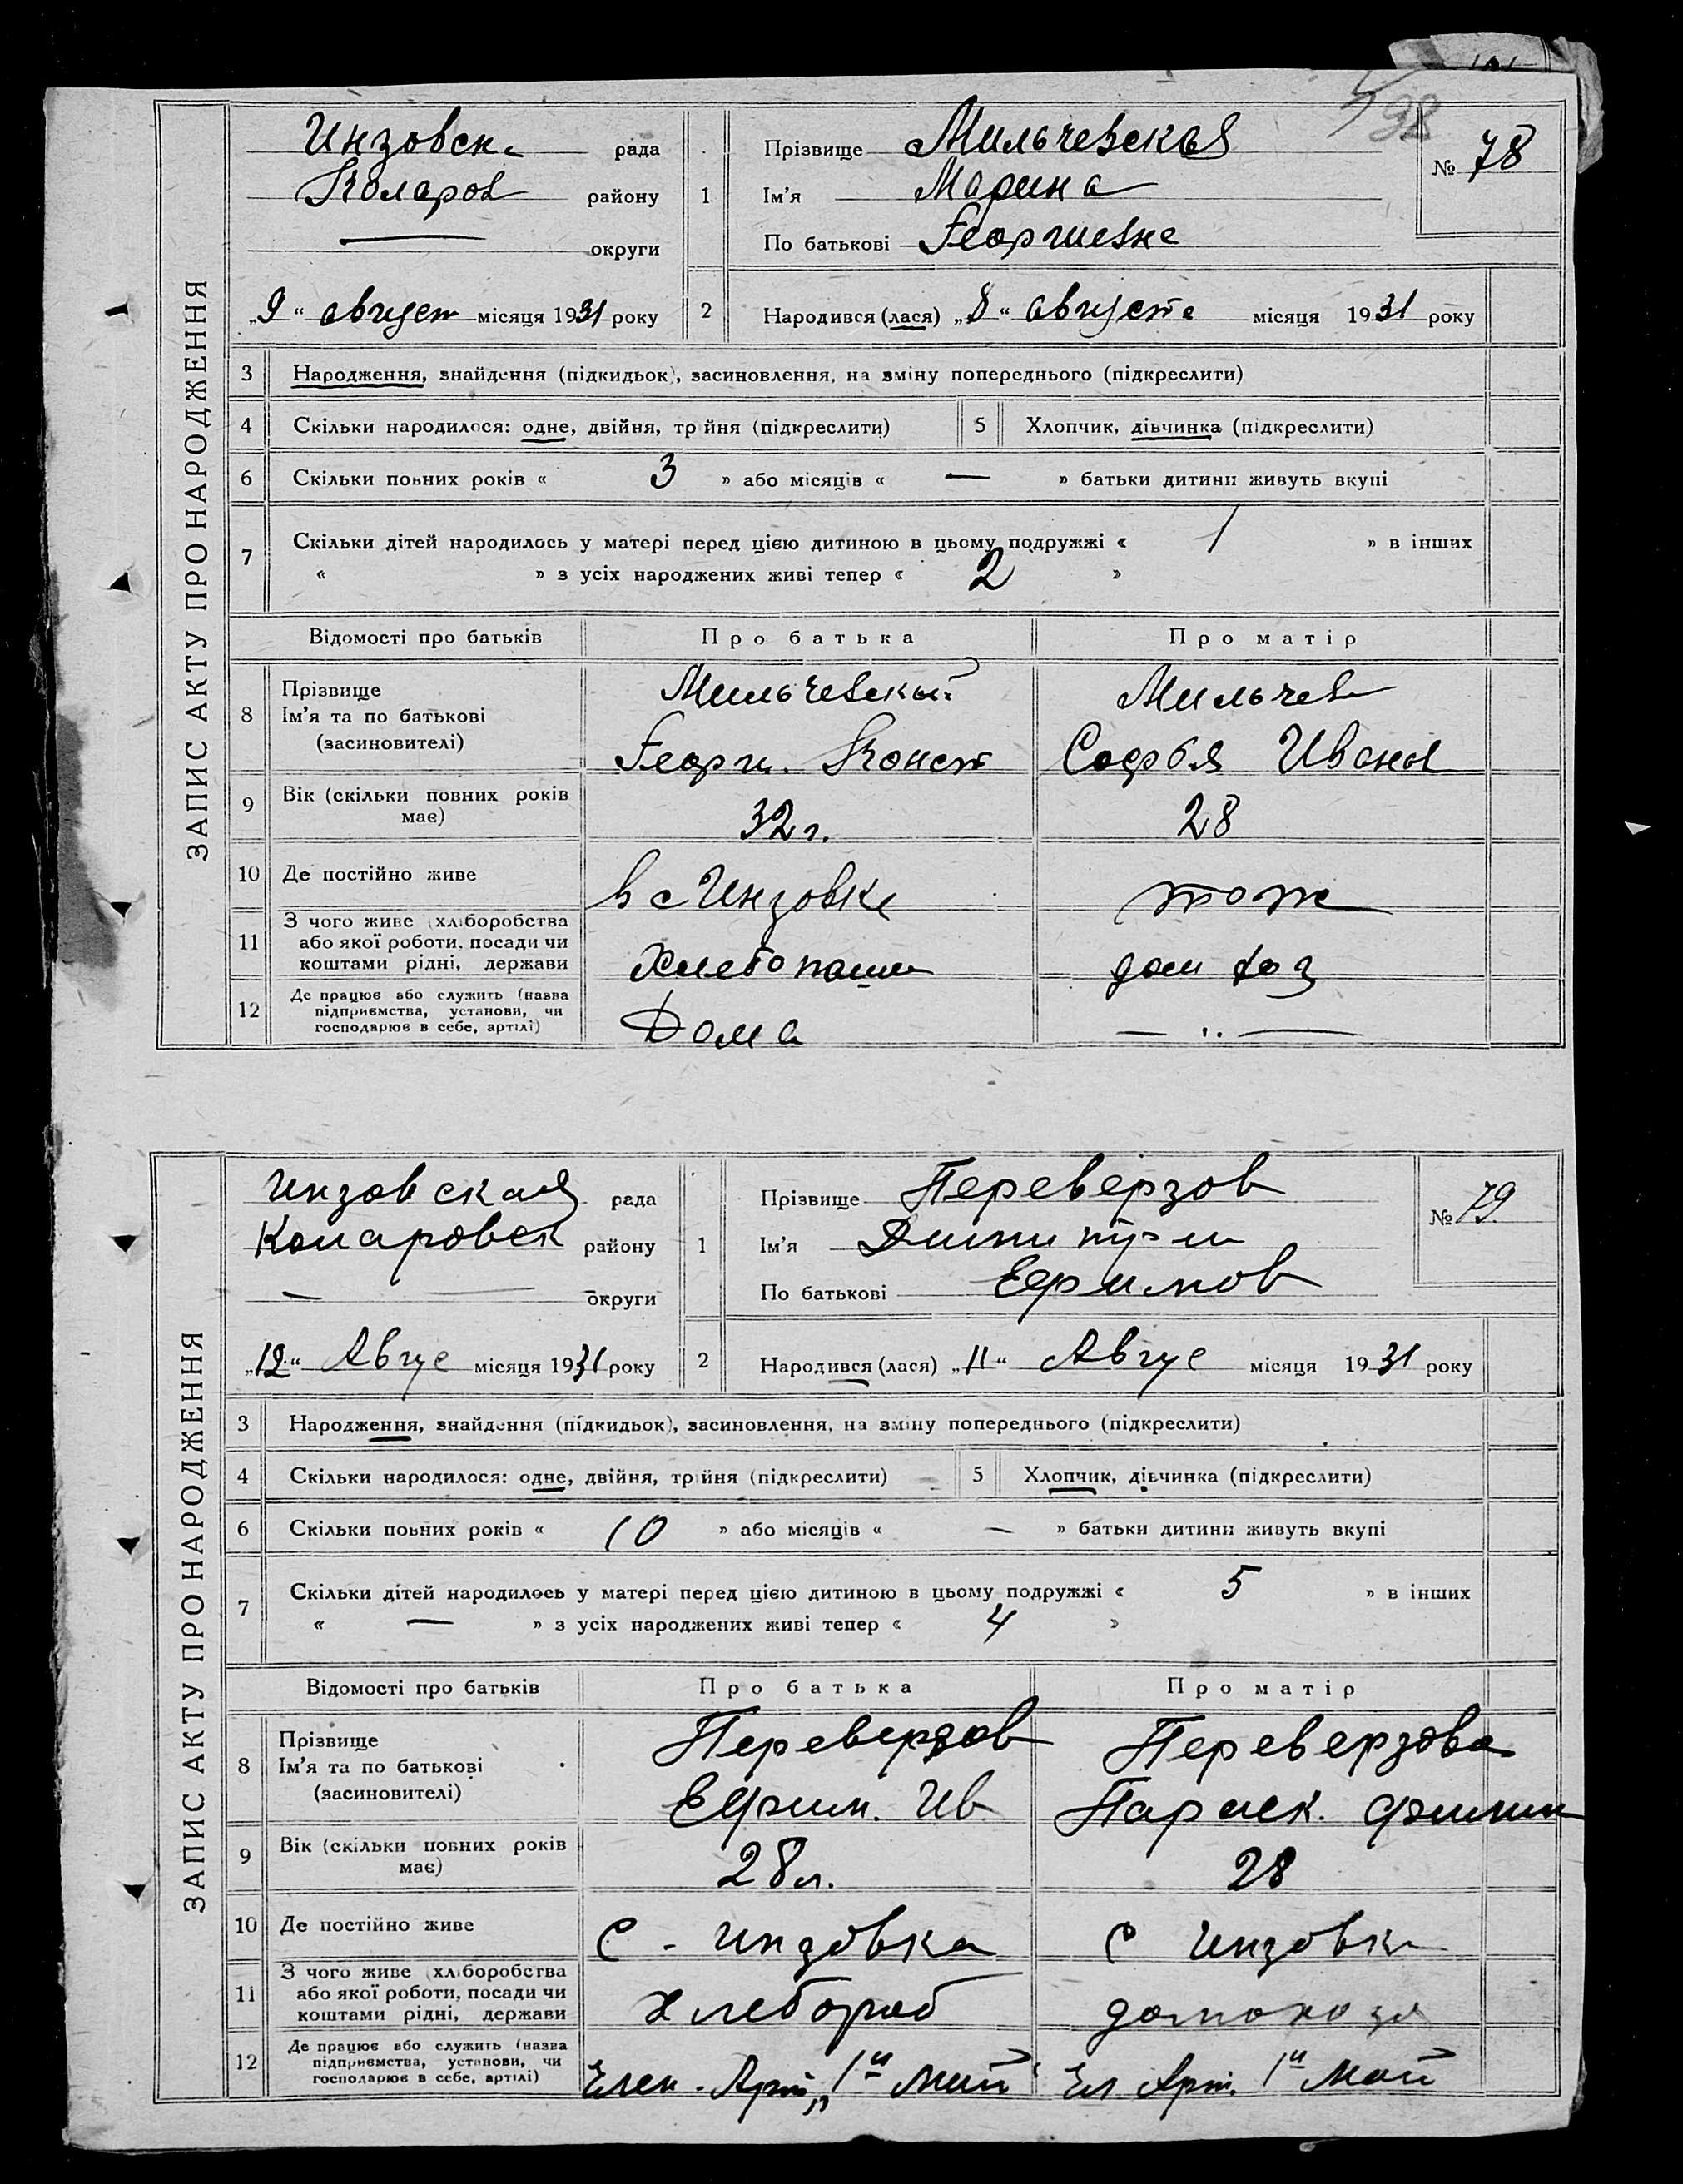 98
ЗАПИС АКТУ ПРО НАРОДЖЕННЯ
Инзовск. рада
Коларов району
— округи
„9“ август місяця 1931 року
1 Прізвище Мильчевская
Ім’я Марина
По батькові Георгиевна
№ 78
2 Народився (лася) „8“ августа місяця 1931 року
3 Народження, знайдення (підкидьок), засиновлення, на зміну попереднього (підкреслити)
4 Скільки народилося: одне, двійня, трійня (підкреслити) 5 Хлопчик, дівчинка (підкреслити)
6 Скільки повних років « 3 » або місяців « — » батьки дитини живуть вкупі
7 Скільки дітей народилось у матері перед цією дитиною в цьому подружжі « 1 » в інших
« » з усіх народжених живі тепер « 2 »
Відомості про батьків Про батька Про матір
8 Прізвище
Ім’я та по батькові
(засиновителі)
Мильчевский Мильчев
Георги. Конст Софья Иванов
9 Вік (скільки повних років
має)
32 г. 28
10 Де постійно живе в с Инзовке тоже
11 З чого живе (хліборобства
або якої роботи, посади чи
коштами рідні, держави
Хлебопаш дом хоз
12 Де працює або служить (назва
підприємства, установи, чи
господарює в себе, артілі)
Дома — „ —
ЗАПИС АКТУ ПРО НАРОДЖЕННЯ
Инзовская рада
Коларовск району
— округи
„12“ Авгус місяця 1931 року
1 Прізвище Переверзов
Ім’я Димитри
По батькові Ефимов
№ 79.
2 Народився (лася) „11“ Авгус місяця 1931 року
3 Народження, знайдення (підкидьок), засиновлення, на зміну попереднього (підкреслити)
4 Скільки народилося: одне, двійня, трійня (підкреслити) 5 Хлопчик, дівчинка (підкреслити)
6 Скільки повних років « 10 » або місяців « — » батьки дитини живуть вкупі
7 Скільки дітей народилось у матері перед цією дитиною в цьому подружжі « 5 » в інших
« — » з усіх народжених живі тепер « 4 »
Відомості про батьків Про батька Про матір
8 Прізвище
Ім’я та по батькові
(засиновителі)
Переверзов Переверзова
Ефим. Ив Параск.
9 Вік (скільки повних років
має)
28 л. 28
10 Де постійно живе С - Инзовка С Инзовк
11 З чого живе (хліборобства
або якої роботи, посади чи
коштами рідні, держави
Хлебороб домохозя
12 Де працює або служить (назва
підприємства, установи, чи
господарює в себе, артілі)
Арт „1й Май“ Арт. 1й Май